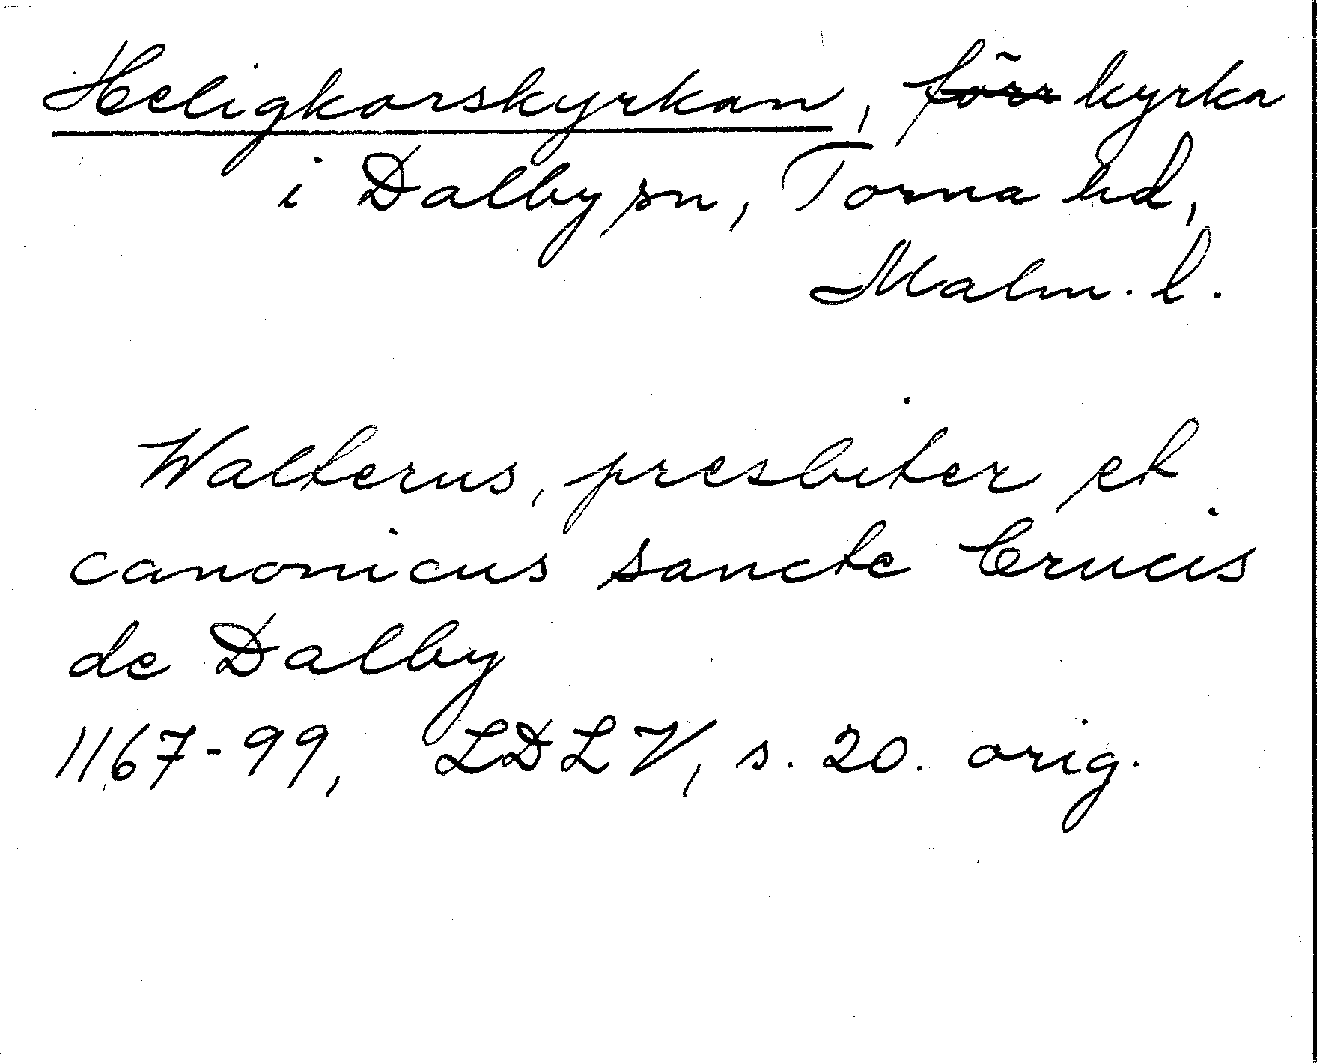 Heligkorskyrkan, förr kyrka
i Dalby sn, Torna hd,
Malm. l.
Walterus, presbiter et
canonicus sancte Crucis
de Dalby
1167-99, LDLV, s. 20. orig.